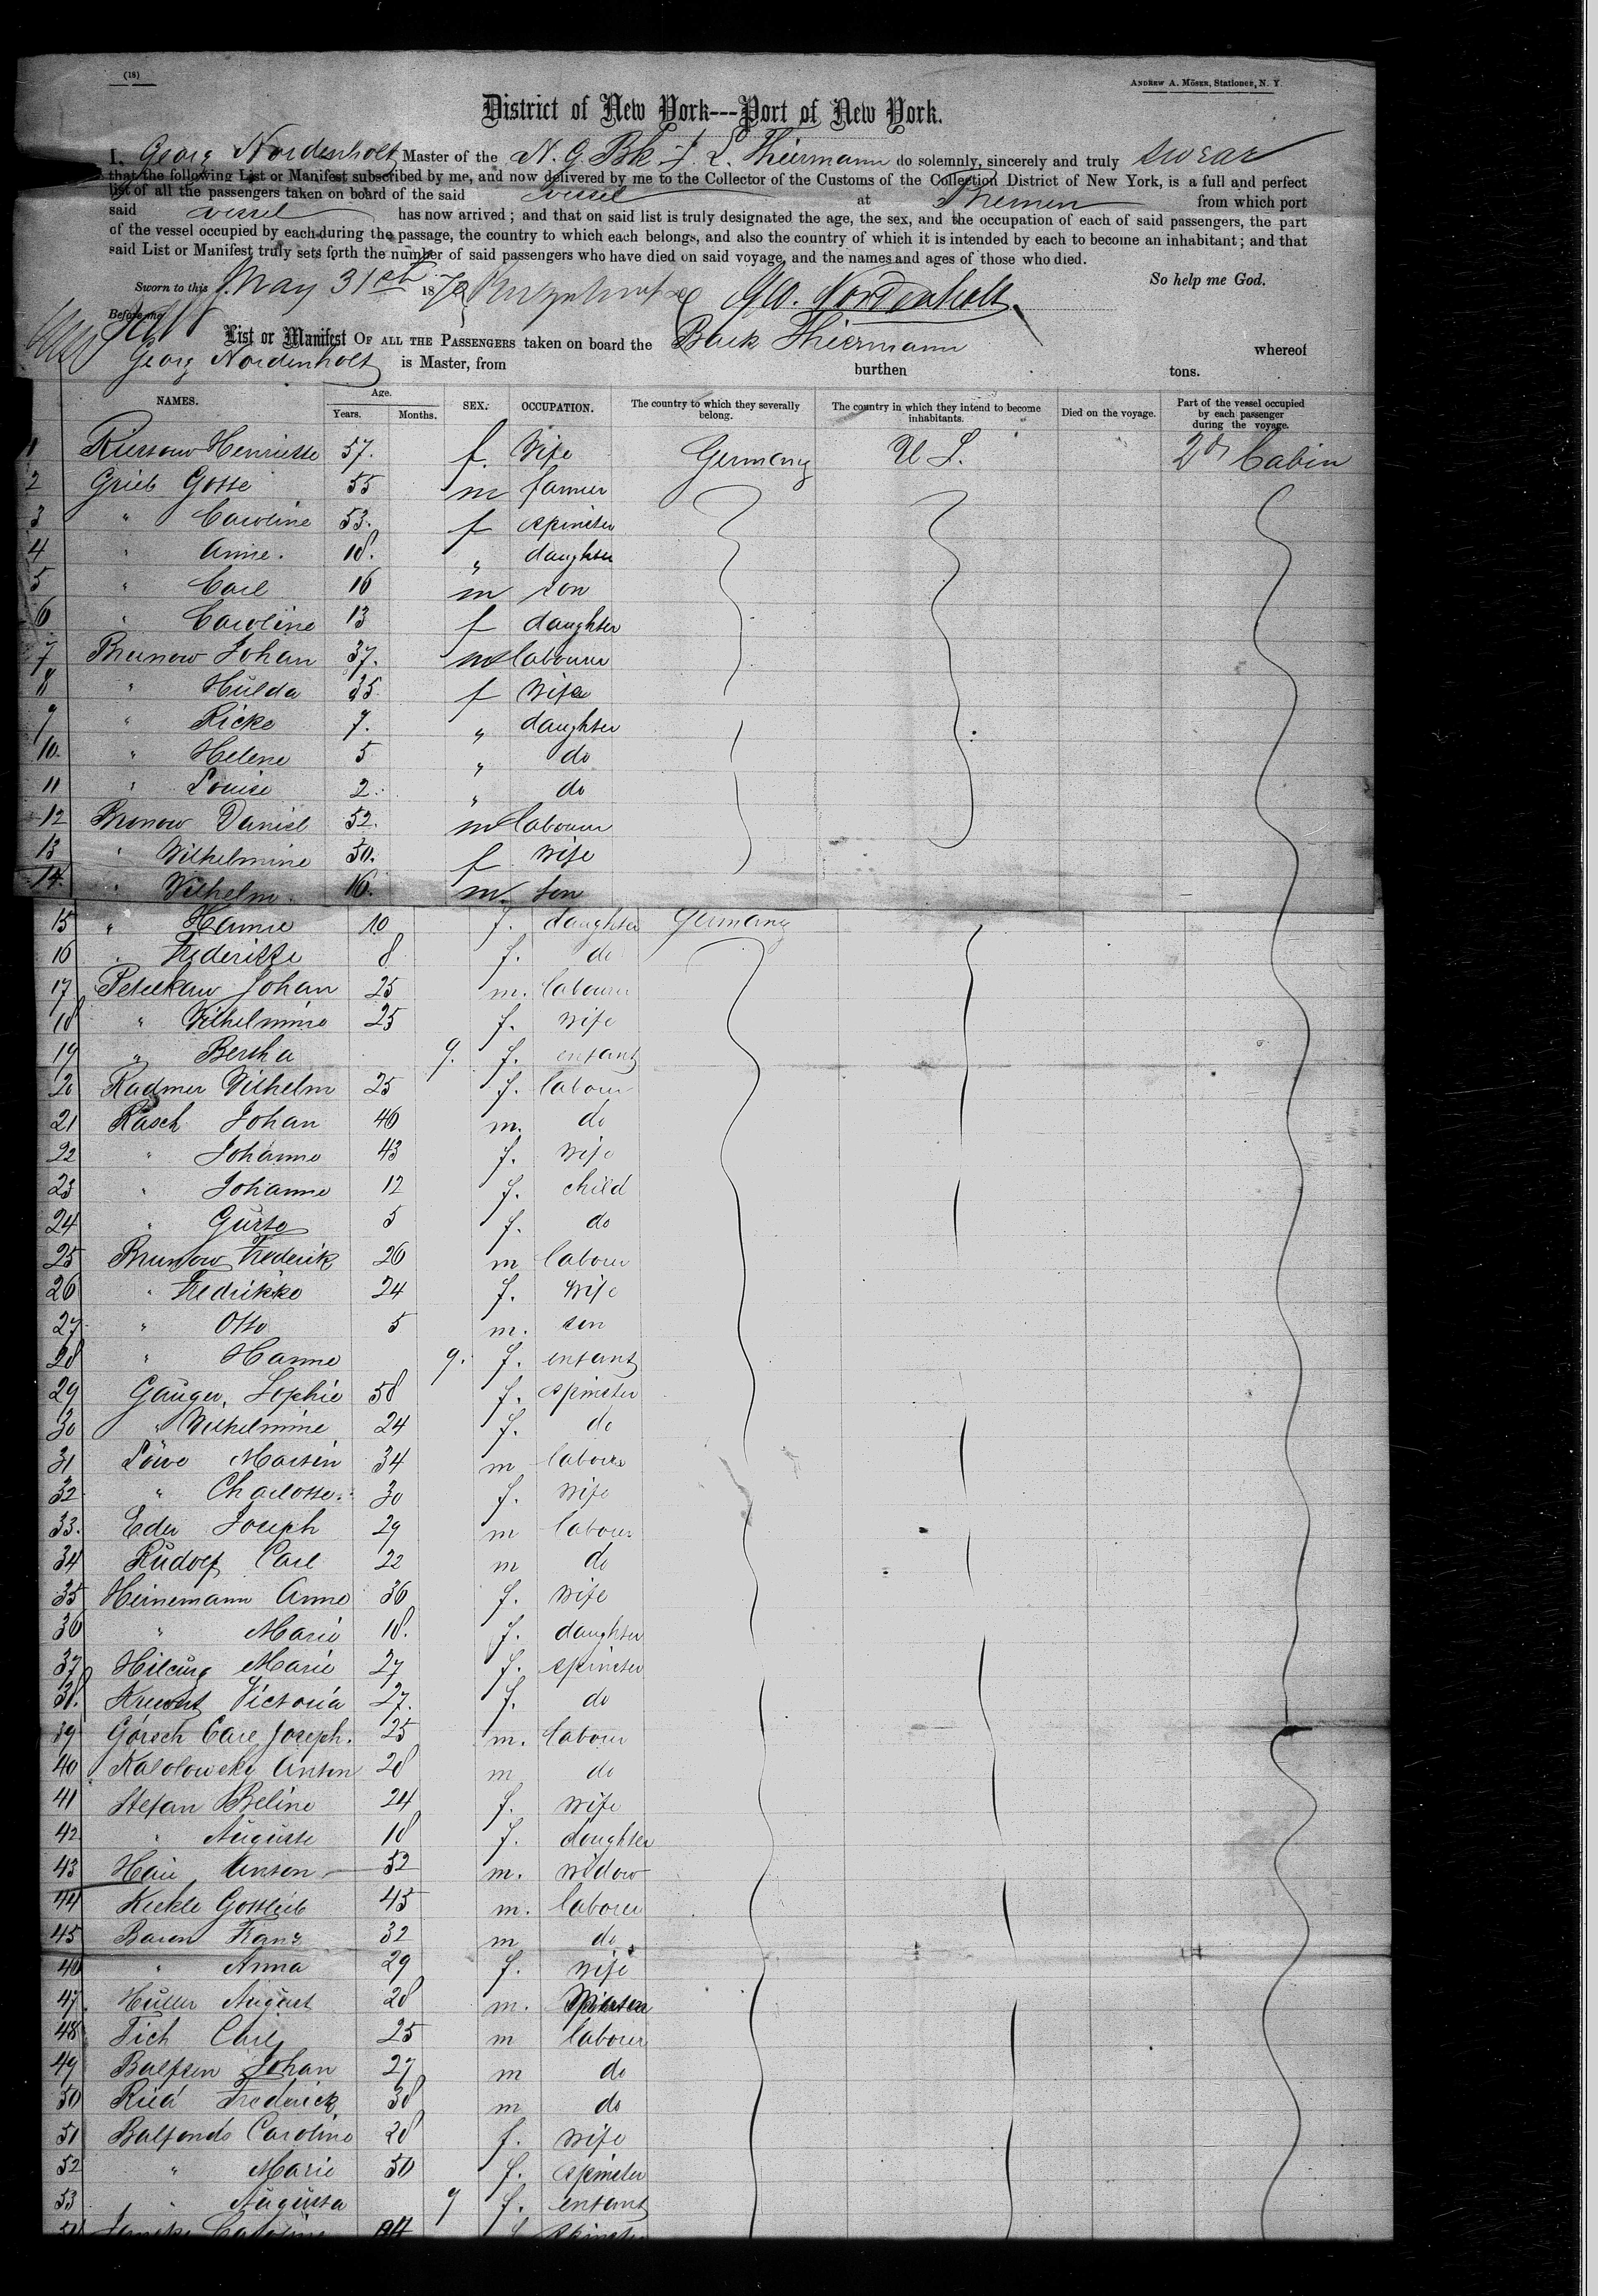 (18)
ANDREW A. MÖSER, Stationer, N. Y.
District of New York---Port of New York.
I, Georg Nordenholt Master of the N. G. Bk J. L. Thiermann do solemnly, sincerely and truly swear
that the following List or Manifest subscribed by me, and now delivered by me to the Collector of the Customs of the Collection District of New York, is a full and perfect
list of all the passengers taken on board of the said vessel at Bremen from which port
said vessel has now arrived; and that on said list is truly designated the age, the sex, and the occupation of each of said passengers, the part
of the vessel occupied by each during the passage, the country to which each belongs, and also the country of which it is intended by each to become an inhabitant; and that
said List or Manifest truly sets forth the number of said passengers who have died on said voyage, and the names and ages of those who died.
So help me God.
Sworn to this May 31st 187 G. W. Nordenholt
Before me
List or Manifest OF ALL THE PASSENGERS taken on board the Bark Thiermann whereof
Georg Nordenholt is Master, from burthen tons.
NAMES. Age. Years. Months. SEX. OCCUPATION. The country to which they severally belong. The country in which they intend to become inhabitants. Died on the voyage. Part of the vessel occupied by each passenger during the voyage.
1 Henriette 57. f. Wife Germany U S. 2d Cabin
2 Grieb Gotte 55 m farmer
3 " Caroline 53. f spinster
4 " Anne. 18. " daughter
5 " Carl 16 m son
6 " Caroline 13 f daughter
7 Brunow Johan 37. m labourer
8 " Hulda 35. f Wife
9 " Ricke 7. " daughter
10. " Helene 5 " do
11 " Louise 2. " do
12 Bronow Daniel 52. m labourer
13 " Wilhelmine 50. f Wife
14. " Wilhelm. 16. m. son
15 " Hanne 10 f. daughter Germany
16 " Frederikke 8 f. do
17 Johan 25 m. labourer
18 " Wilhelmine 25 f. wife
19 " Bertha 9. f. enfant
20 Radmer Wilhelm 25 f. labour
21 Rasch Johan 46 m. do
22 " Johanne 43 f. wife
23 " Johanne 12 f. child
24 " Gürte 5 f. do
25 Brunow Frederik 26 m labour
26 " Fredrikke 24 f. Wife
27. " Otto 5 m. son
28 " Hanne 9. f. enfant
29 Gauger, Sophie 58 f. spinster
30 " Wilhelmine 24 f. do
31 Löwe Martin 34 m labour
32 " Charlotte. 30 f. wife
33. Eder Joseph 29 m labour
34 Rudolf Carl 22 m do
35 Heinemann Anne 36 f. wife
36 " Marie 18. f. daughter
37 Marie 27 f. spinster
38. Victoria 27. f. do
39 Görsch Carl Joseph. 25 m. labour
40 Anton 28 m do
41 Stefan Beline 24 f. wife
42 " Auguste 18 f. daughter
43 Anton 52 m. widow
44 Gottlieb 45 m. labourer
45 Baren Franz 32 m do
46 " Anna 29 f. wife
47. Huller August 28 m.
48 Fich Carl 25 m labourer
49 Johan 27 m do
50 Ried Frederick 38 m do
51 Caroline 28 f. wife
52 " Marie 50 f. spinster
53 " Augusta 9 f. enfant
54 Caroline f spinster